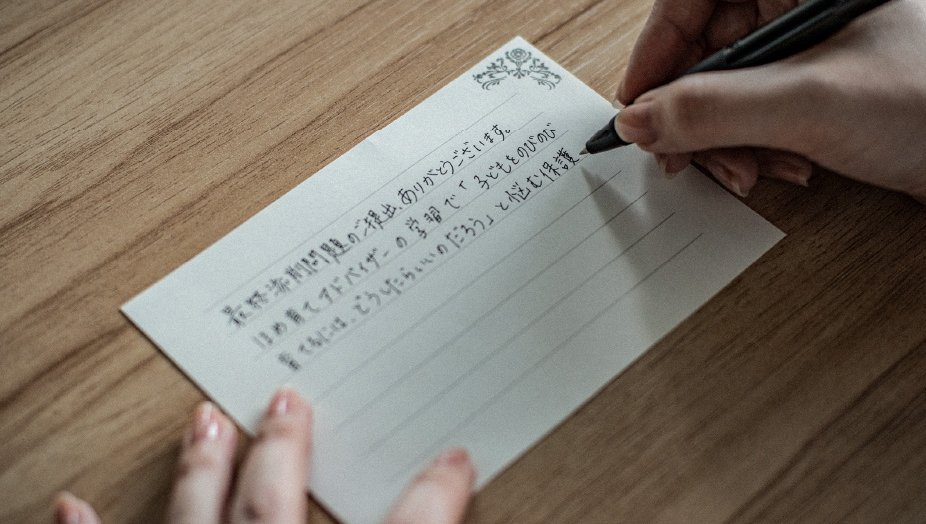 最終添削問題のご提出、ありがとうございます。
ほめ育てアドバイザーの学習で「子どもをのびのび
育てるには、どうしたらいいのだろう」と悩む保護